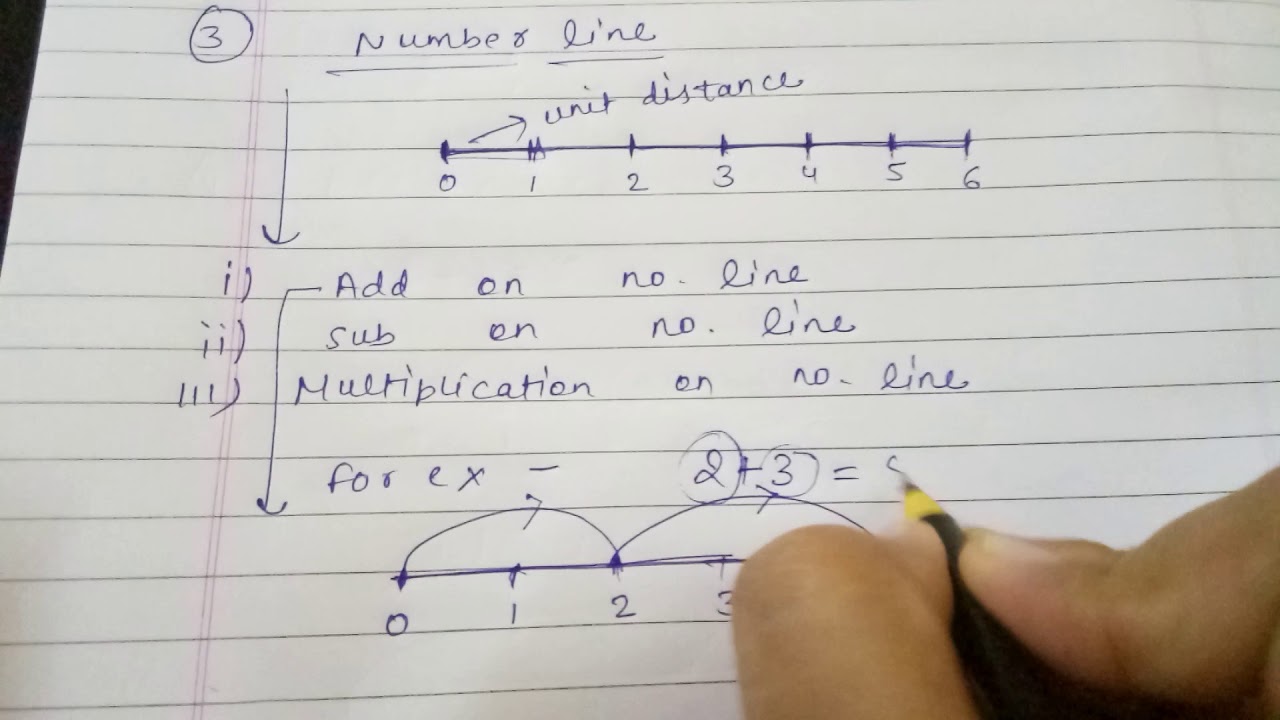 3 Number line
unit distance
0 1 2 3 4 5 6
i) Add on no. line
ii) sub on no. line
III) Multiplication on no. line
for ex - 2+3 =
0 1 2 3